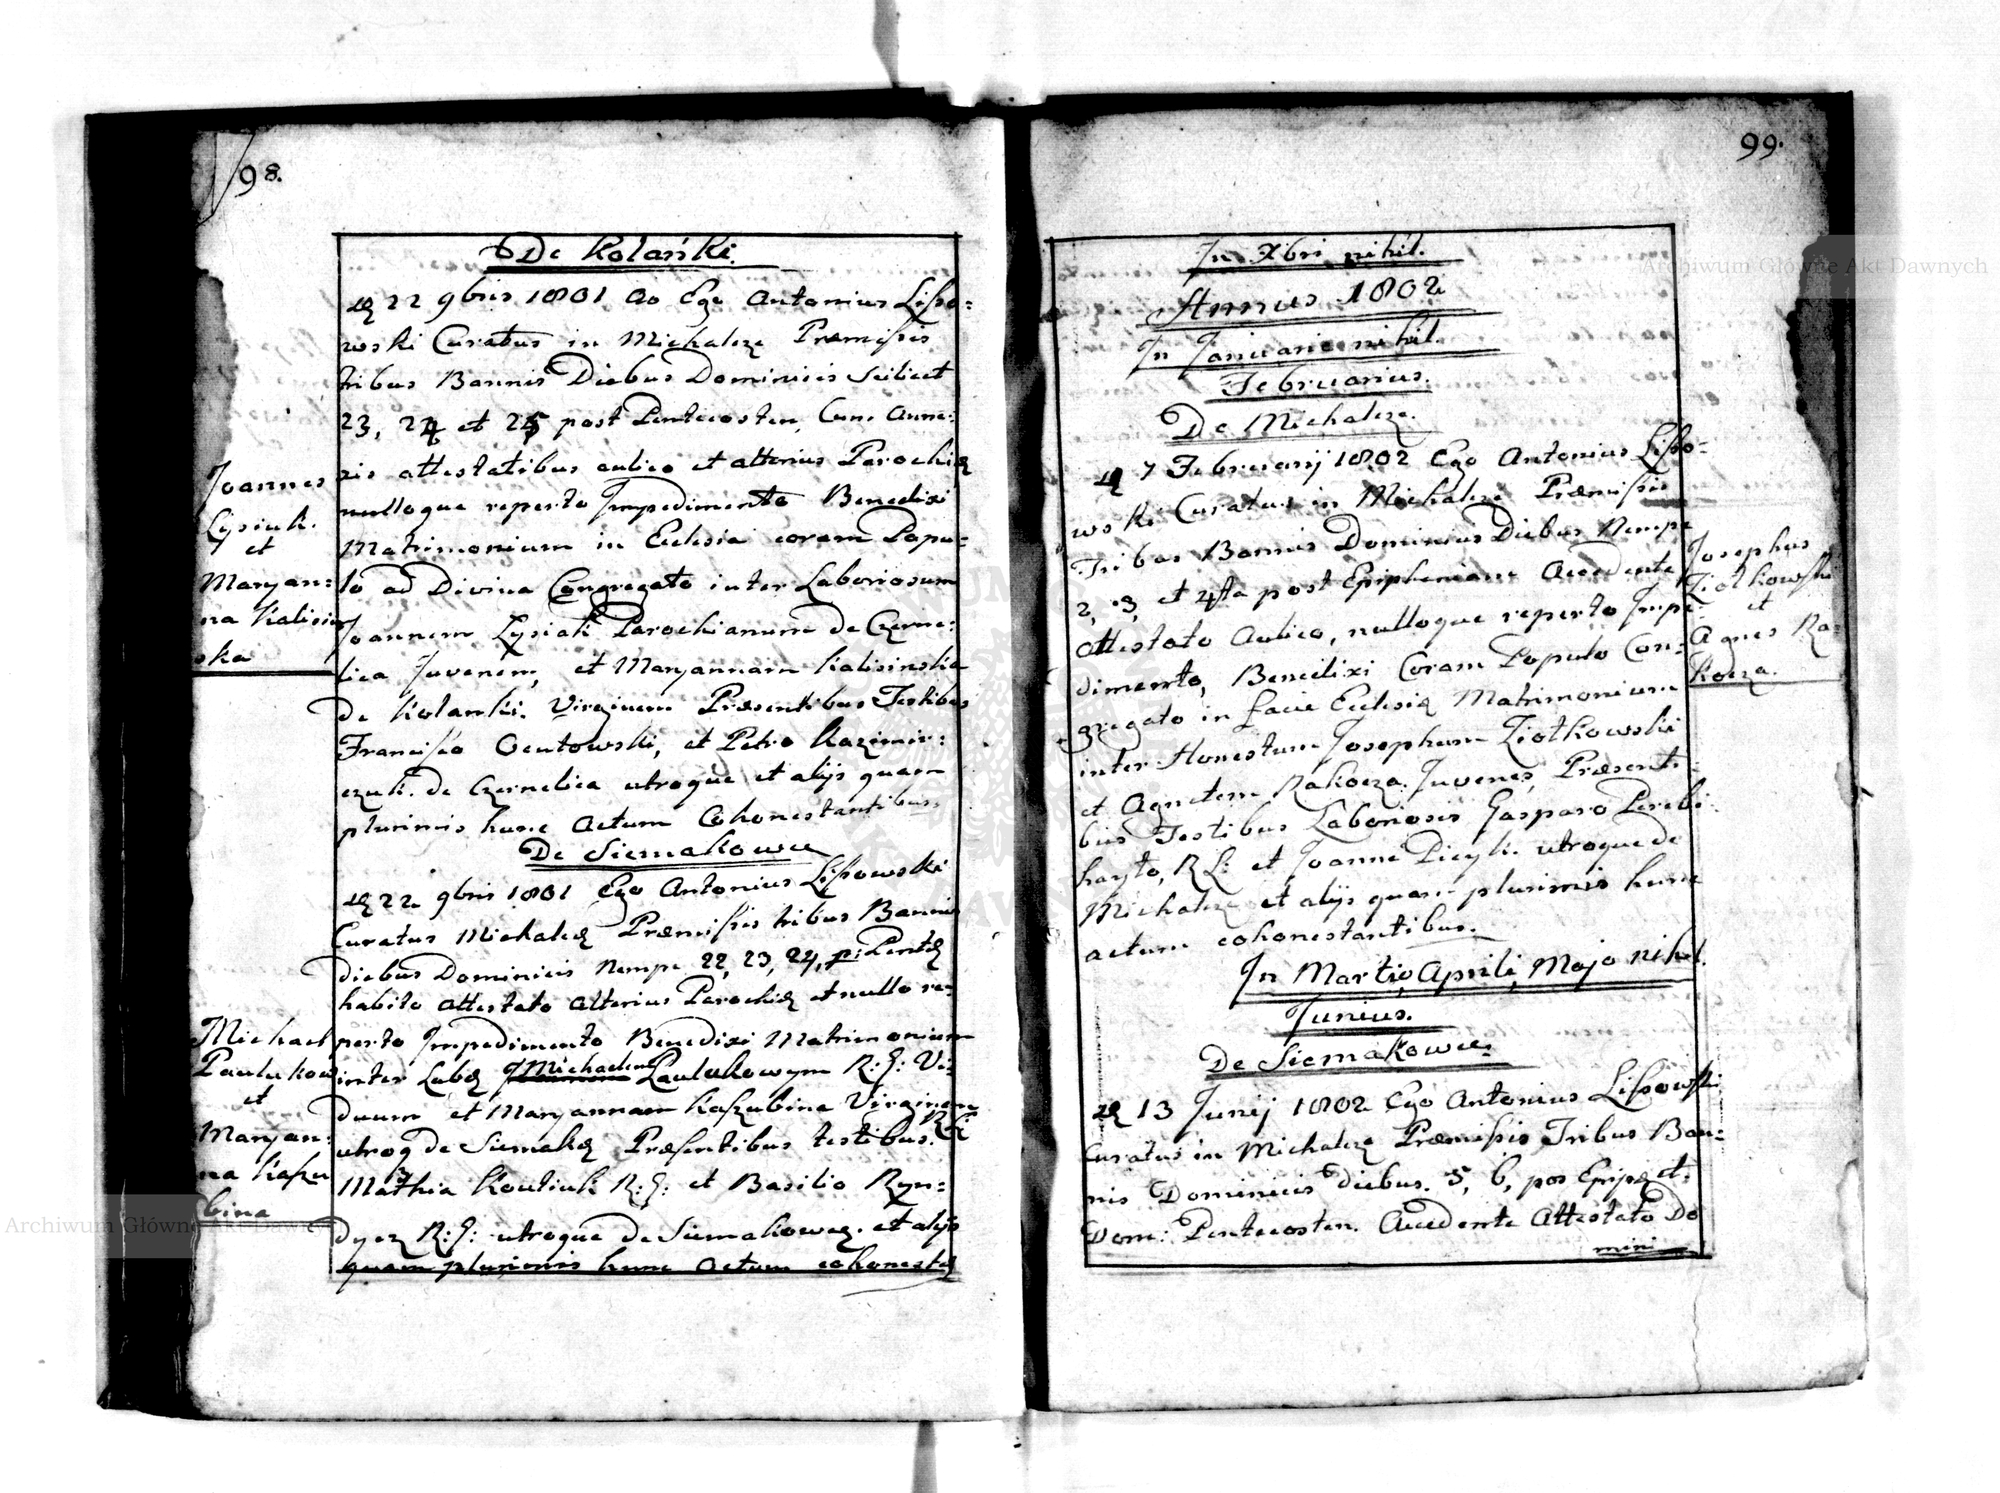 98.
De Kolańki.
22 9bris 1801 Ao Ego Antonius Lisso=
wski Curatus in Michalcze Præmissis
tribus Bannis Diebus Dominicis Scilicet
23, 24 et 25 post Pentecosten, Cum Anne:
xis attestatibus aulico et alterius Parochiæ
nulloque reperto Impedimento Benedixi
Matrimonium in Eclesia coram Popu=
lo ad Divina Congregato inter Laboriosum
Joannem Łysiak Parochianum de Czerne:
lica Juvenem, et Maryannam Kalisinska
de Kolanki. Virginem Præsentibus Testibus
Francisco Ocutowski, et Petro Kazimir=
czuk. de Czernelica utroque et alijs quam
plurimis hunc Actum Cohonestantibus
Joannes
Łysiak.
et
Maryan=
na Kalisin
ska
De Siemakowce
22 9bris 1801 Ego Antonius Lissowski
Curatus Michalcz Præmissis tribus Bannis
diebus Dominicis Nempe 22, 23, 24, p: Pent
habito Attestato Alterius Parochiæ et nullo re=
perto Impedimento Benedixi Matrimonium
inter Lab Michaelem Paulukowym R: G: Vi=
duum et Maryannam Kaszubina Virginem
R G
utroq de Siemak Præsentibus testibus.
Mathia Koutiuk R: G: et Basilio Ryn=
dycz R: G: utroque de Siemakowcz. et alijs
quam plurimis hunc Actum cohonest
Michael
Paulukow
et
Maryan=
na Kaszu
bina
99.
In Xbri nihil.
Annus 1802
In Januario nihil.
Februarius.
De Michalcze.
7 Februarij 1802 Ego Antonius Lisso=
wski Curatus in Michalcze Præmissis
Tribus Bannis Dominicis Diebus Nempe
2, 3, et 4ta post Epiphaniam Accedente
Attestato Aulico, nulloque reperto Impe
dimento, Benedixi Coram Populo Con=
gregato in facie Eclesiæ Matrimonium
inter Honestum Josephum Ziołkowski
et Agnetem Rakocza Juvenes, Præsenti
bus Testibus Laboriosis Gasparo Perebi
hayto, R L: et Joanne Picyk. utroque de
Michalcze et alijs quam plurimis hunc
actum cohonestantibus.
Josephus
Ziołkowski
et
Agnes Ra=
kocza.
In Martio, Aprili, Majo nihil.
Junius.
De Siemakowce.
13 Junij 1802 Ego Antonius Lissowski
Curatus in Michalcze Præmissis Tribus Ban=
nis Dominicis diebus. 5, 6, pos Epip et
Dom: Pentecosten. Accedente Attestato Do
mini
Archiwum Główne Akt Dawnych
Archiwum Główne Akt Dawnych